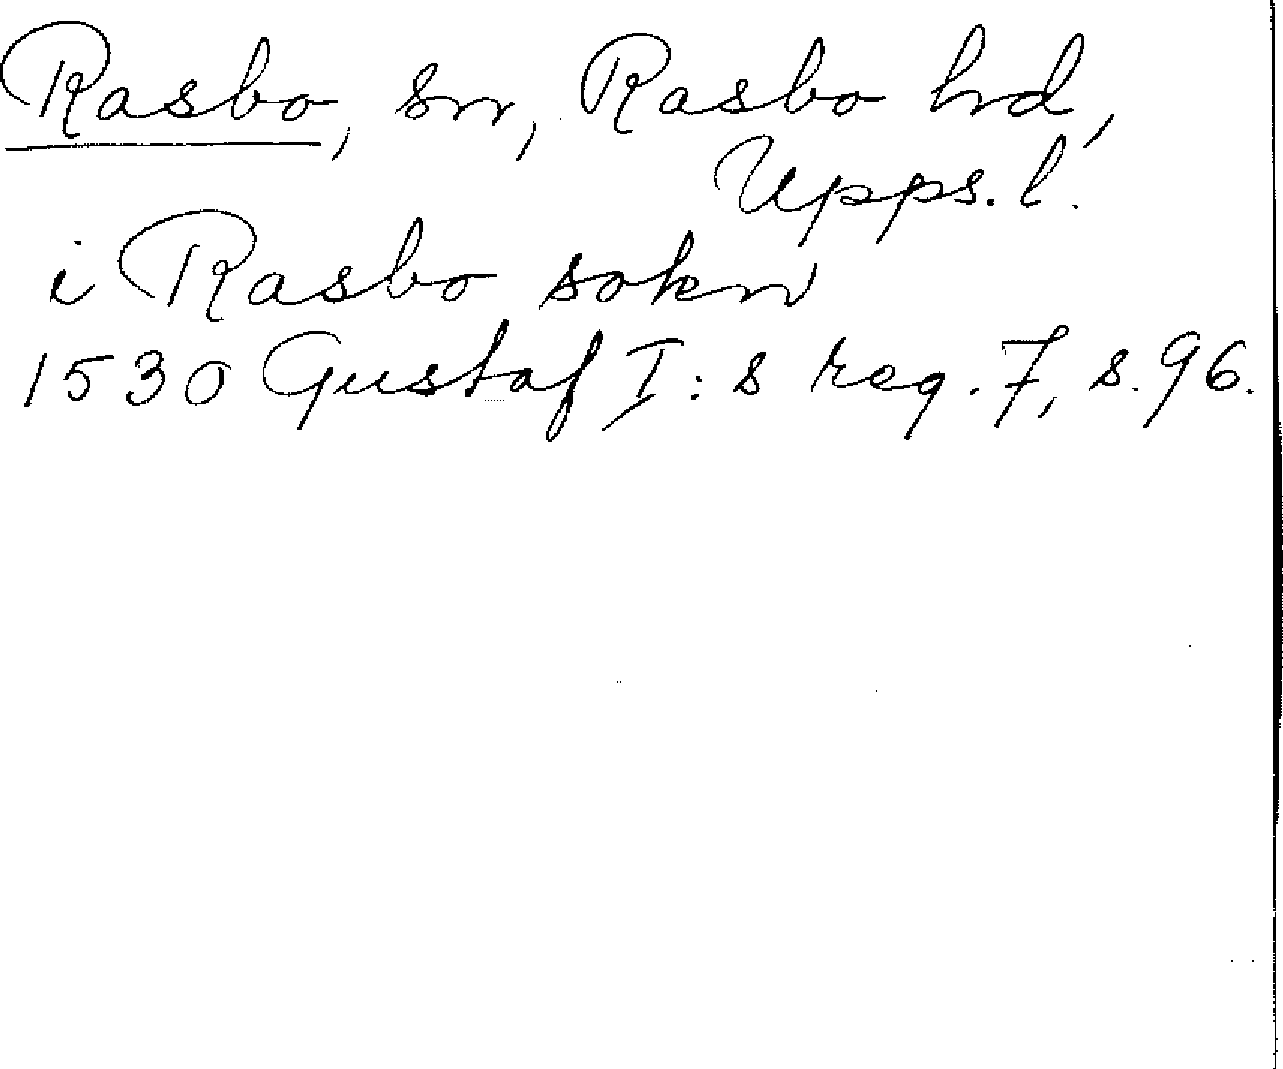 Rasbo, sn, Rasbo hd,
Upps. l.
i Rasbo sokn
1530 Gustaf I:s reg. 7, s. 96.